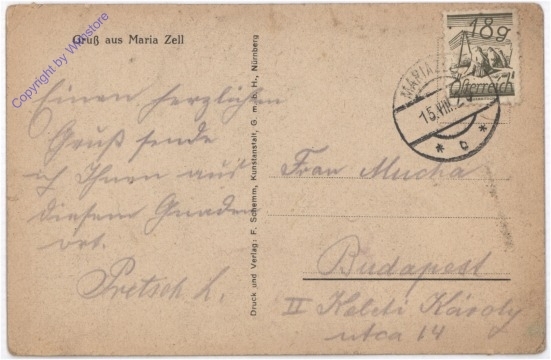 Gruß aus Maria Zell
Copyright by Wienstore
Einen herzlichen
Gruß sende
ich Ihnen aus
diesem Gnaden
ort.
Pretsch L.
Druck und Verlag: F. Schemm, Kunstanstalt, G. m. b. H., Nürnberg
18g
Österreich
MARIA
15.VIII.2
* c *
Frau Mucha
Budapest
II Keleti Károly
utca 14